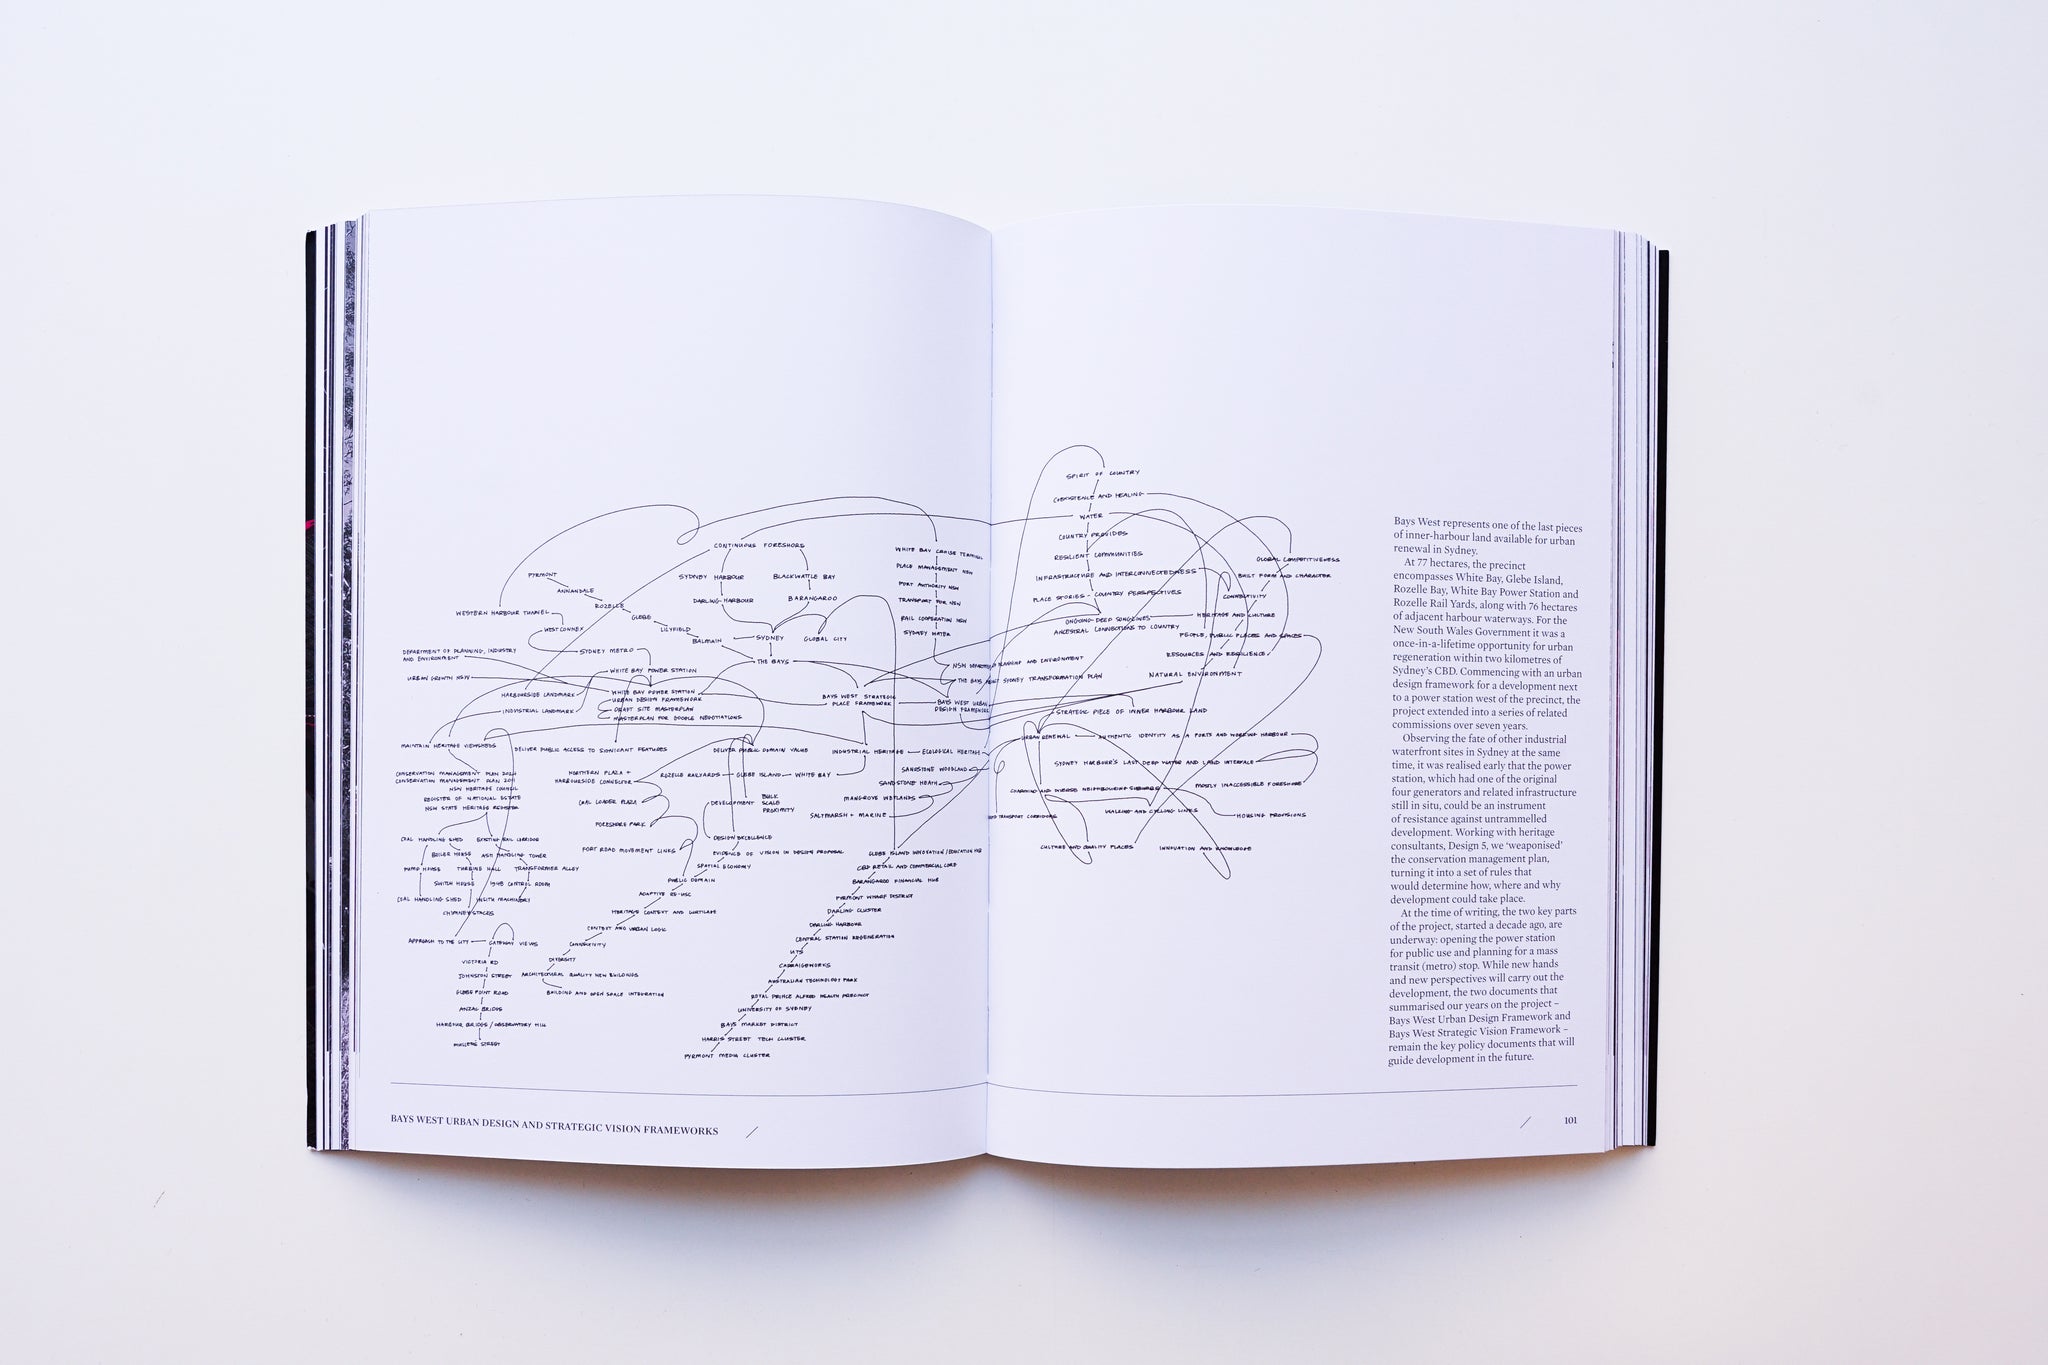 SPIRIT OF COUNTRY
COEXISTENCE AND HEALING
WATER
COUNTRY PROVIDES
RESILIENT COMMUNITIES
INFRASTRUCTURE AND INTERCONNECTEDNESS
PLACE STORIES - COUNTRY PERSPECTIVES
ONGOING DEEP SONGLINES
ANCESTRAL CONNECTIONS TO COUNTRY
GLOBAL COMPETITIVENESS
BUILT FORM AND CHARACTER
CONNECTIVITY
HERITAGE AND CULTURE
PEOPLE, PUBLIC PLACES AND SPACES
RESOURCES AND RESILIENCE
NATURAL ENVIRONMENT
CONTINUOUS FORESHORE
SYDNEY HARBOUR
BLACKWATTLE BAY
DARLING HARBOUR
BARANGAROO
SYDNEY
GLOBAL CITY
THE BAYS
PYRMONT
ANNANDALE
ROZELLE
GLEBE
LILYFIELD
BALMAIN
WESTERN HARBOUR TUNNEL
WESTCONNEX
SYDNEY METRO
WHITE BAY CRUISE TERMINAL
PLACE MANAGEMENT NSW
PORT AUTHORITY NSW
TRANSPORT FOR NSW
RAIL CORPORATION NSW
SYDNEY WATER
DEPARTMENT OF PLANNING, INDUSTRY
AND ENVIRONMENT
URBAN GROWTH NSW
WHITE BAY POWER STATION
HARBOURSIDE LANDMARK
INDUSTRIAL LANDMARK
WHITE BAY POWER STATION
URBAN DESIGN FRAMEWORK
DRAFT SITE MASTERPLAN
MASTERPLAN FOR GOOGLE NEGOTIATIONS
BAYS WEST STRATEGIC
PLACE FRAMEWORK
BAYS WEST URBAN
DESIGN FRAMEWORK
STRATEGIC PIECE OF INNER HARBOUR LAND
URBAN RENEWAL
AUTHENTIC IDENTITY AS A PORTS AND WORKING HARBOUR
SYDNEY HARBOUR'S LAST DEEP WATER AND LAND INTERFACE
MOSTLY INACCESSIBLE FORESHORE
CHARMING AND DIVERSE NEIGHBOURING SUBURBS
TRANSPORT CORRIDORS
WALKING AND CYCLING LINKS
HOUSING PROVISIONS
CULTURE AND QUALITY PLACES
INNOVATION AND KNOWLEDGE
MAINTAIN HERITAGE VIEWSHEDS
DELIVER PUBLIC ACCESS TO SIGNIFICANT FEATURES
DELIVER PUBLIC DOMAIN VALUE
INDUSTRIAL HERITAGE
ECOLOGICAL HERITAGE
SANDSTONE WOODLAND
SANDSTONE HEATH
MANGROVE WETLANDS
SALTMARSH + MARINE
CONSERVATION MANAGEMENT PLAN 2011
NSW HERITAGE COUNCIL
REGISTER OF NATIONAL ESTATE
NSW STATE HERITAGE REGISTER
NORTHERN PLAZA +
HARBOURSIDE CONNECTOR
ROZELLE RAILYARDS
GLEBE ISLAND
WHITE BAY
COAL LOADER PLAZA
FORESHORE PARK
PORT ROAD MOVEMENT LINKS
DEVELOPMENT
BULK
SCALE
PROXIMITY
DESIGN EXCELLENCE
EVIDENCE OF VISION IN DESIGN PROPOSAL
SPATIAL ECONOMY
PUBLIC DOMAIN
ADAPTIVE RE-USE
HERITAGE CONTEXT AND CURTILAGE
CONTEXT AND URBAN LOGIC
CONNECTIVITY
DIVERSITY
ARCHITECTURAL QUALITY NEW BUILDINGS
BUILDING AND OPEN SPACE INTEGRATION
COAL HANDLING SHED
EXISTING RAIL CORRIDOR
BOILER HOUSE
ASH HANDLING TOWER
PUMP HOUSE
TURBINE HALL
TRANSFORMER ALLEY
SWITCH HOUSE
1948 CONTROL ROOM
COAL HANDLING SHED
CHIMNEY STACKS
APPROACH TO THE CITY
GATEWAY VIEWS
VICTORIA RD
JOHNSTON STREET
GLEBE POINT ROAD
ANZAC BRIDGE
HARBOUR BRIDGE / OBSERVATORY HILL
MULLENS STREET
GLEBE ISLAND INNOVATION / EDUCATION HUB
CBD RETAIL AND COMMERCIAL CORE
BARANGAROO FINANCIAL HUB
PYRMONT WHARF DISTRICT
DARLING CLUSTER
DARLING HARBOUR
CENTRAL STATION REGENERATION
UTS
CARRIAGEWORKS
AUSTRALIAN TECHNOLOGY PARK
ROYAL PRINCE ALFRED HEALTH PRECINCT
UNIVERSITY OF SYDNEY
BAYS MARKET DISTRICT
HARRIS STREET TECH CLUSTER
PYRMONT MEDIA CLUSTER
Bays West represents one of the last pieces
of inner-harbour land available for urban
renewal in Sydney.
At 77 hectares, the precinct
encompasses White Bay, Glebe Island,
Rozelle Bay, White Bay Power Station and
Rozelle Rail Yards, along with 76 hectares
of adjacent harbour waterways. For the
New South Wales Government it was a
once-in-a-lifetime opportunity for urban
regeneration within two kilometres of
Sydney's CBD. Commencing with an urban
design framework for a development next
to a power station west of the precinct, the
project extended into a series of related
commissions over seven years.
Observing the fate of other industrial
waterfront sites in Sydney at the same
time, it was realised early that the power
station, which had one of the original
four generators and related infrastructure
still in situ, could be an instrument
of resistance against untrammelled
development. Working with heritage
consultants, Design 5, we 'weaponised'
the conservation management plan,
turning it into a set of rules that
would determine how, where and why
development could take place.
At the time of writing, the two key parts
of the project, started a decade ago, are
underway: opening the power station
for public use and planning for a mass
transit (metro) stop. While new hands
and new perspectives will carry out the
development, the two documents that
summarised our years on the project –
Bays West Urban Design Framework and
Bays West Strategic Vision Framework –
remain the key policy documents that will
guide development in the future.
BAYS WEST URBAN DESIGN AND STRATEGIC VISION FRAMEWORKS /
/ 101